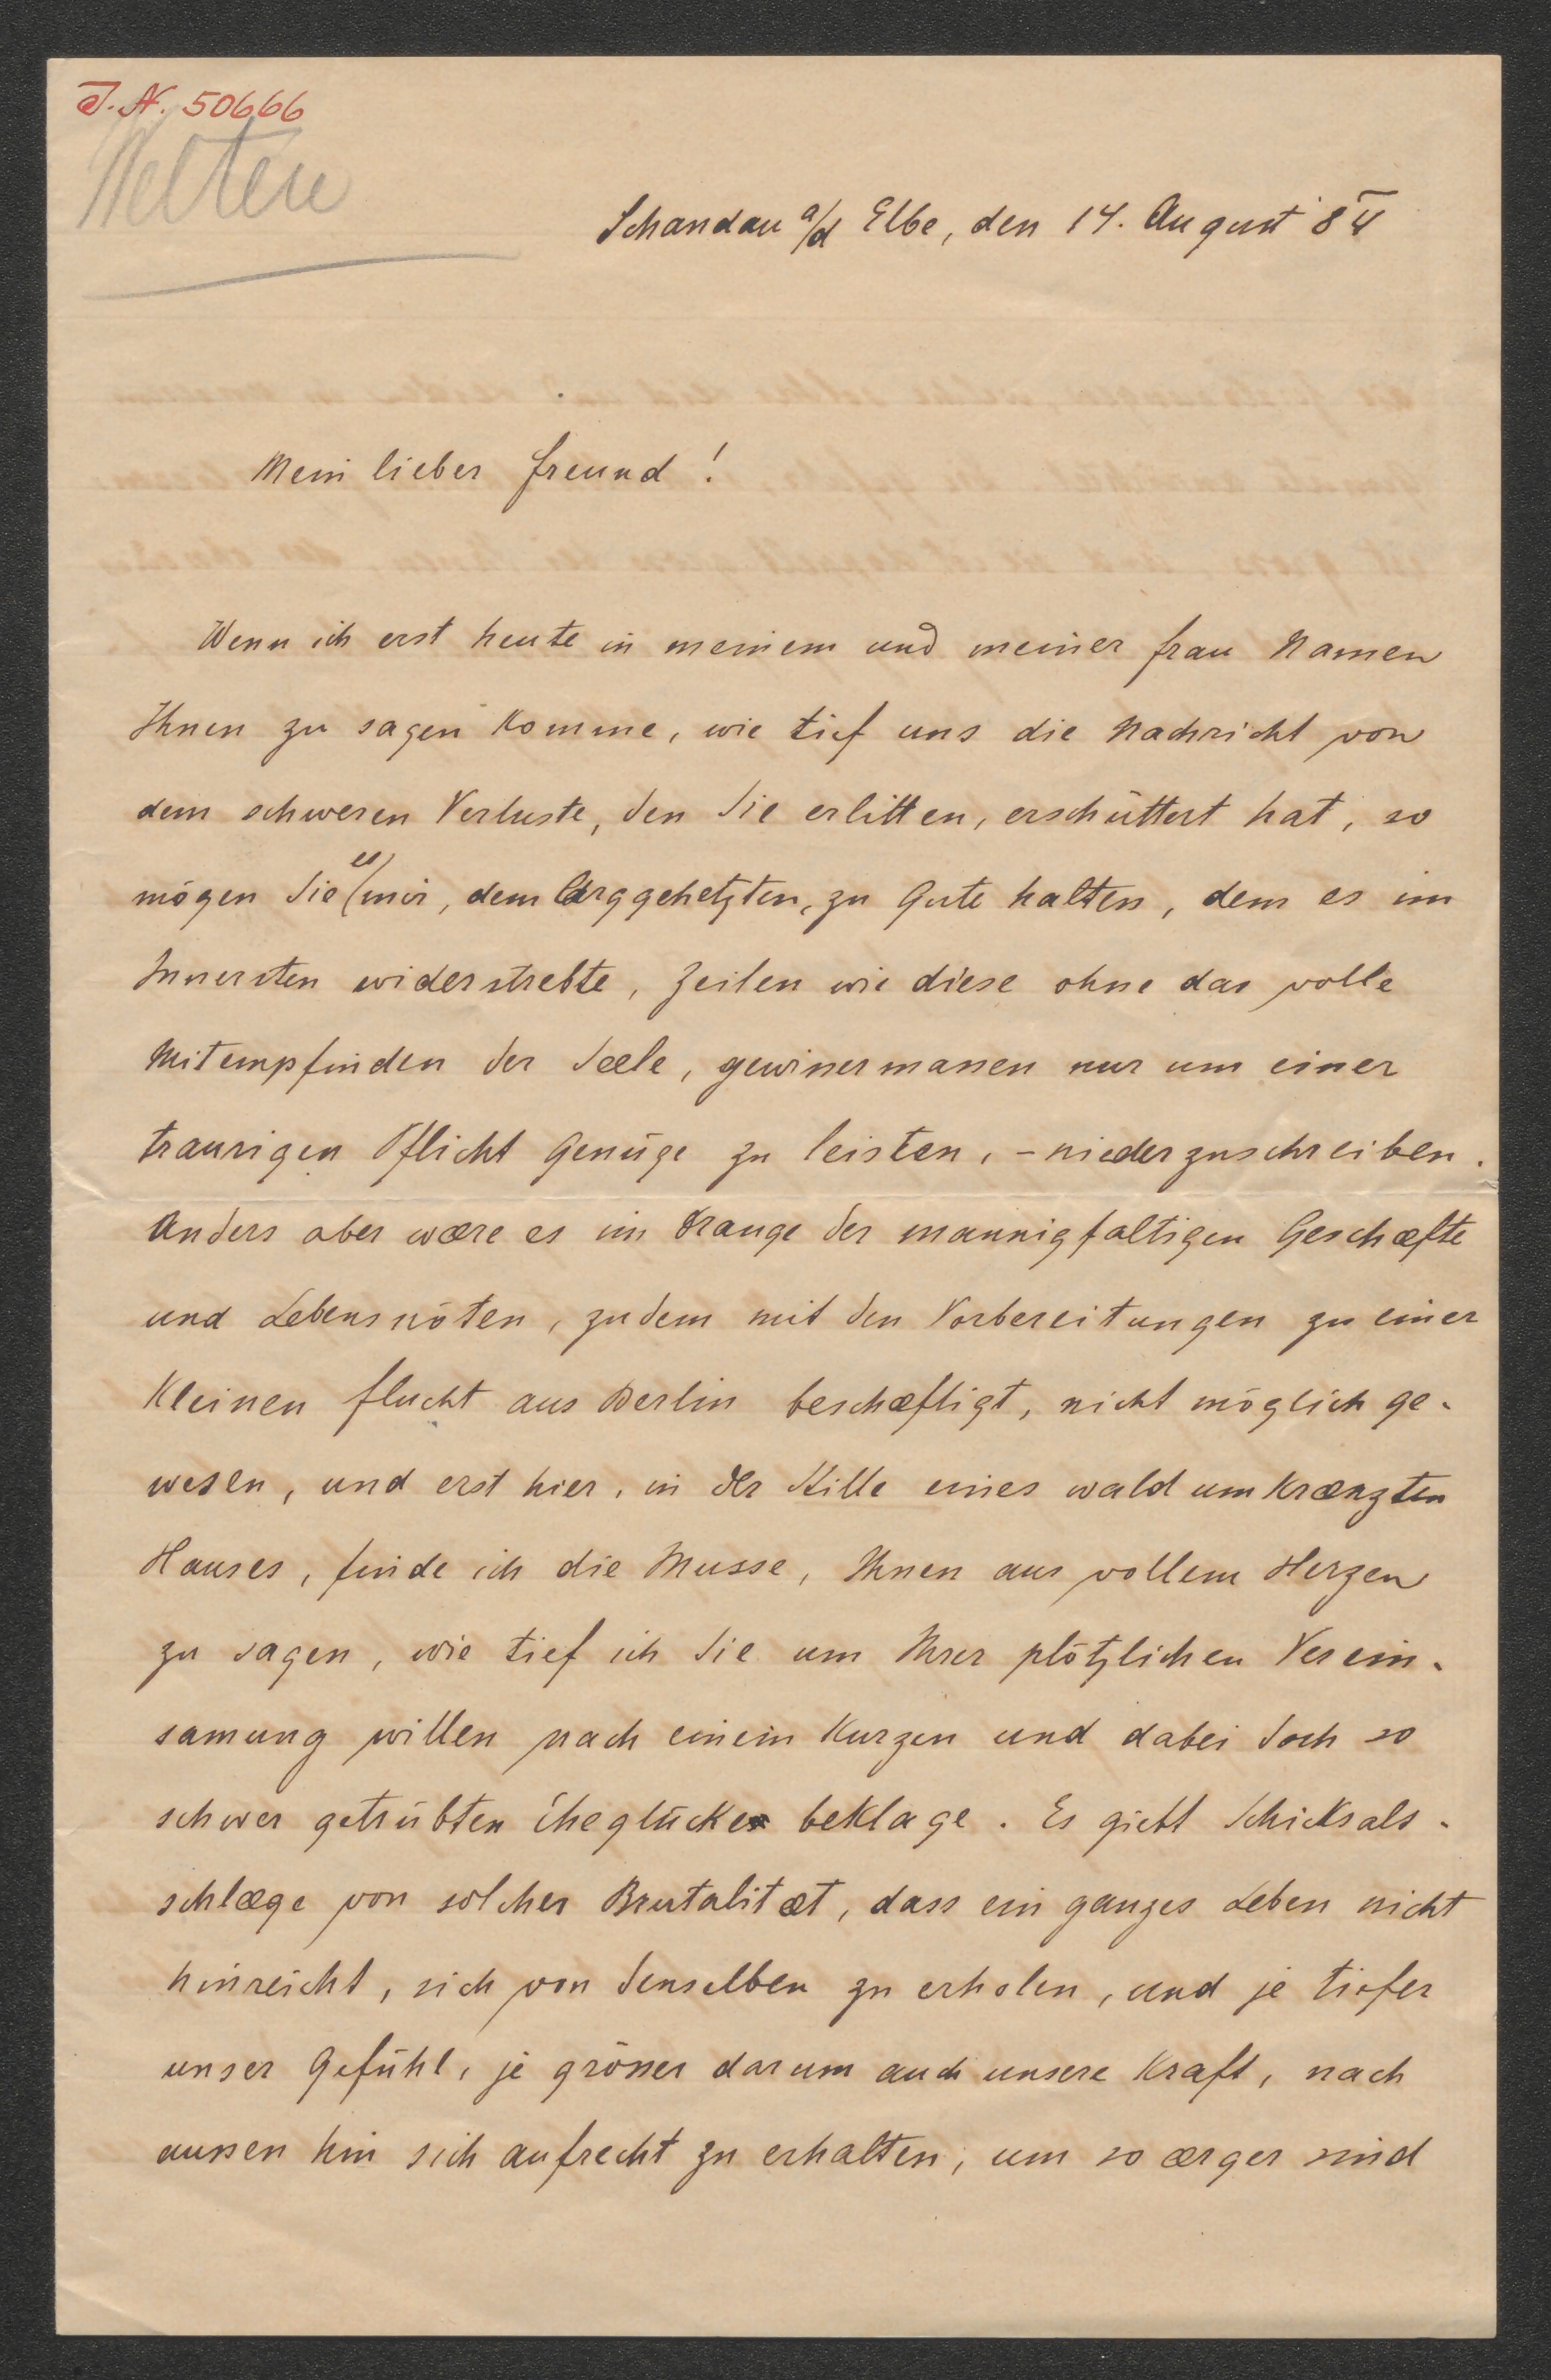 J. N. 50666
Welten
Schandau a/d Elbe, den 14. August 84
Mein lieber Freund!
Wenn ich erst heute in meinem und meiner Frau Namen
Ihnen zu sagen komme, wie tief uns die Nachricht von
dem schweren Verluste, den Sie erlitten, erschüttert hat, so
mögen Sie es mir, dem Arggehetzten, zu Gute halten, dem es im
Innersten widerstrebte, Zeilen wie diese ohne das volle
Mitempfinden der Seele, gewissermassen nur um einer
traurigen Pflicht Genüge zu leisten, – niederzuschreiben.
Anders aber wære es im Drange der mannigfaltigen Geschæfte
und Lebensnöten, zudem mit den Vorbereitungen zu einer
kleinen Flucht aus Berlin beschæftigt, nicht möglich ge-
wesen, und erst hier, in der Stille eines waldumkrænzten
Hauses, finde ich die Musse, Ihnen aus vollem Herzen
zu sagen, wie tief ich Sie um Ihrer plötzlichen Verein-
samung willen nach einem kurzen und dabei doch so
schwer getrübten Eheglücke beklage. Es giebt Schicksals-
schlæge von solcher Brutalitæt, dass ein ganzes Leben nicht
hinreicht, sich von denselben zu erholen, und je tiefer
unser Gefühl, je grösser darum auch unsere Kraft, nach
aussen hin sich aufrecht zu erhalten, um so ærger sind